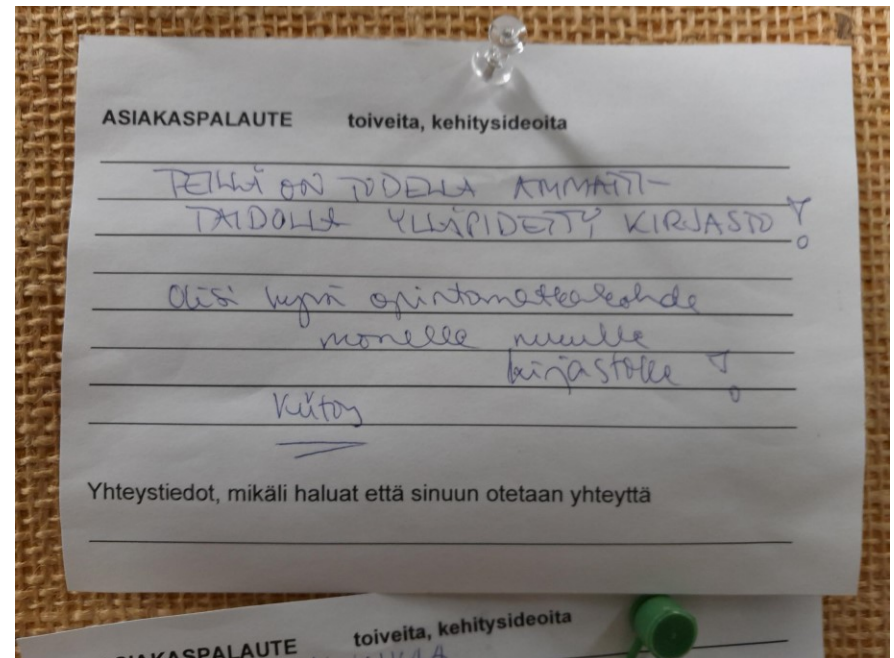 ASIAKASPALAUTE toiveita, kehitysideoita
TEILLÄ ON TODELLA AMMATTI-
TAIDOLLA YLLÄPIDETTY KIRJASTO!
Olisi hyvä opintomatkakohde
monelle muulle
kirjastolle!
Kiitos
Yhteystiedot, mikäli haluat että sinuun otetaan yhteyttä
ASIAKASPALAUTE toiveita, kehitysideoita